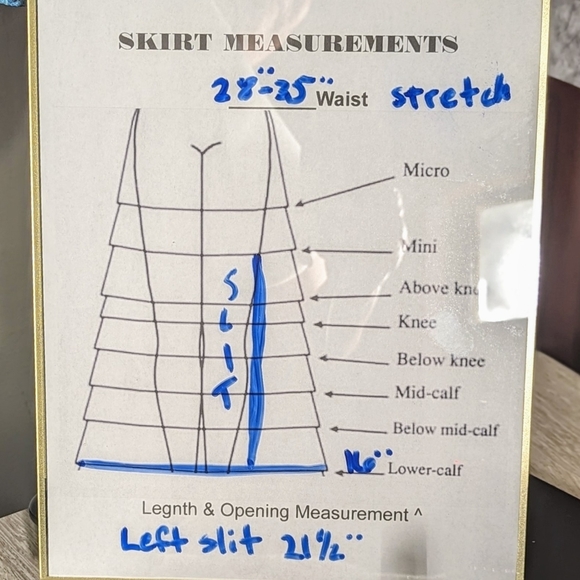 SKIRT MEASUREMENTS
28"-35" Waist stretch
Micro
Mini
Above kne
Knee
Below knee
Mid-calf
Below mid-calf
Lower-calf
SLIT
Legnth & Opening Measurement ^
Left slit 21½"